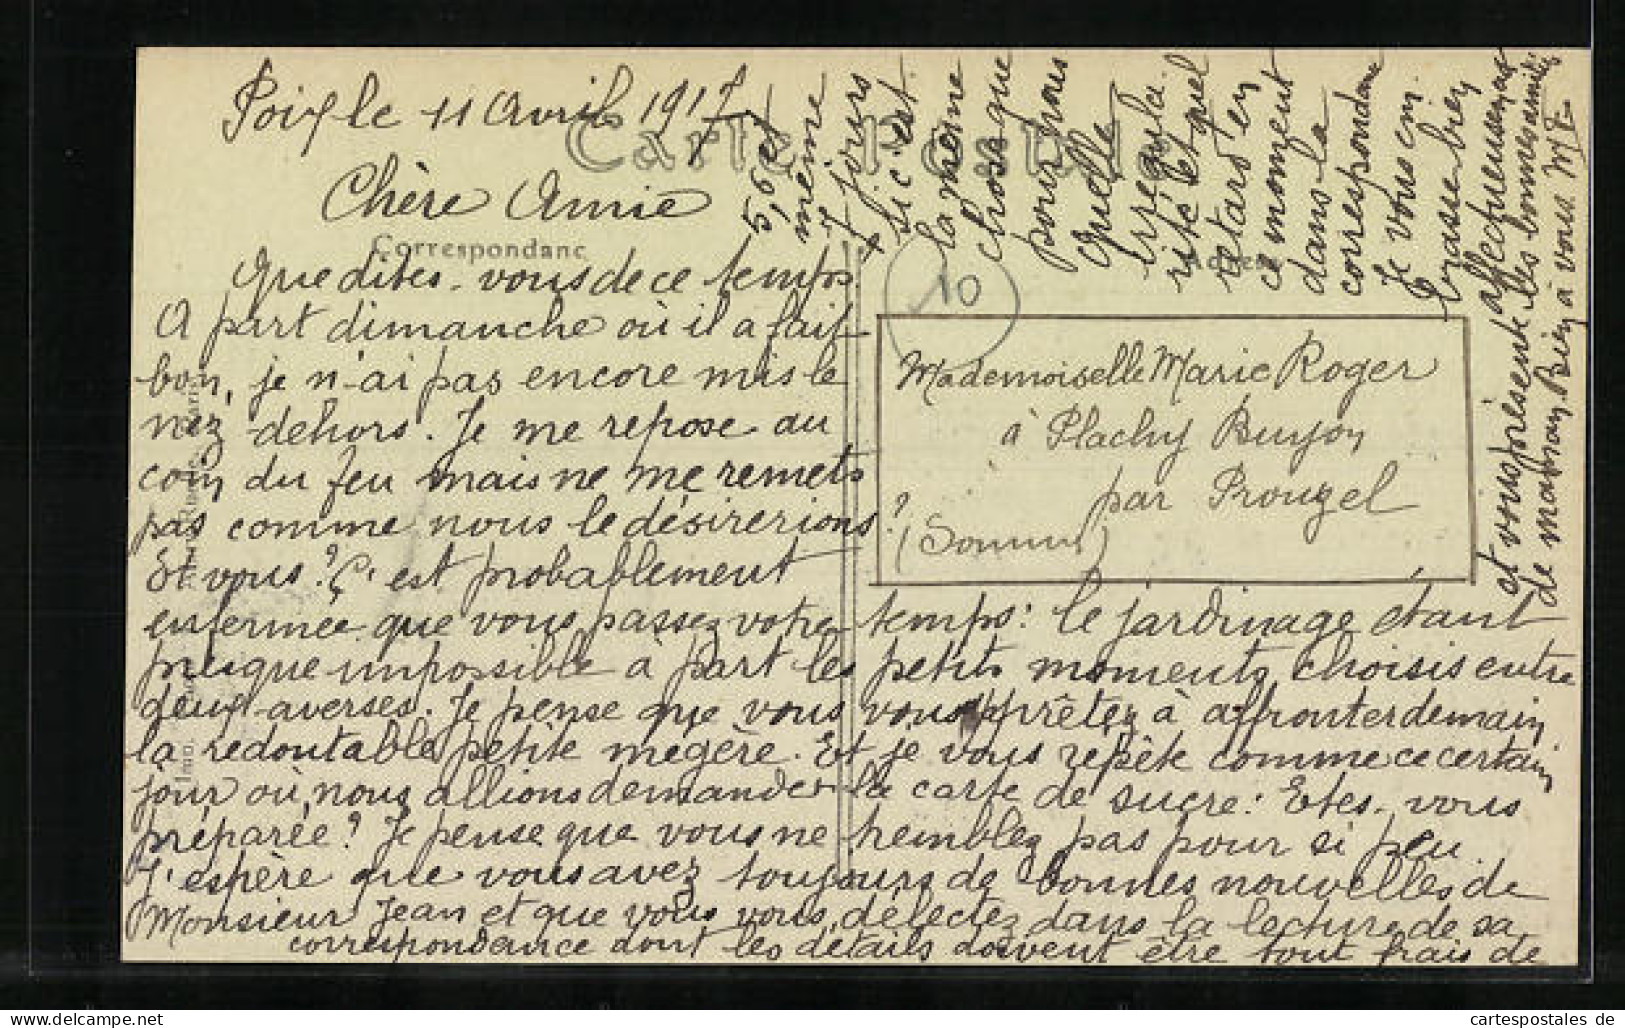 Poix le 11 Avril 1917
Carte Postale
Chère Amie
Correspondance
Adresse
Que dites-vous de ce temps
A part dimanche où il a fait
bon, je n'ai pas encore mis le
nez dehors. Je me repose au
coin du feu mais ne me remets
pas comme nous le désirerions.
Et vous? C'est probablement
enfermée que vous passez votre temps: le jardinage étant
presque impossible à part les petits moments choisis entre
deux averses. Je pense que vous vous apprêtez à affronter demain
la redoutable petite mégère. Et je vous répète comme ce certain
jour où nous allions demander la carte de sucre: Etes-vous
préparée? Je pense que vous ne tremblez pas pour si peu.
J'espère que vous avez toujours de bonnes nouvelles de
Monsieur Jean et que vous vous délectez dans la lecture de sa
correspondance dont les détails doivent être tout frais de
5, 6 et
même
7 jours
si c'est
la même
chose que
pour nous
Quelle
irrégula-
rité et quel
retard en
ce moment
dans la
correspondance
Je vous em-
brasse bien
affectueusement
et vous présente les bonnes amitiés
de maman Bien à vous M F
10
Mademoiselle Marie Roger
à Plachy Buyon
par Prouzel
? (Somme)
cartespostales de